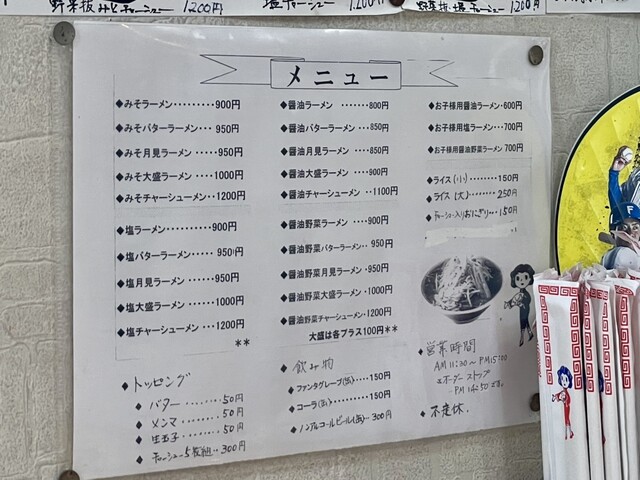 野菜抜みそチャーシュー 1200円
塩チャーシュー 1,200円
野菜抜塩チャーシュー 1200円
メニュー
◆みそラーメン・・・・・・・・・900円
◆みそバターラーメン・・・ 950円
◆みそ月見ラーメン・・・・・950円
◆みそ大盛ラーメン・・・・1000円
◆みそチャーシューメン・・1200円
◆塩ラーメン・・・・・・・・・900円
◆塩バターラーメン・・・・・950円
◆塩月見ラーメン・・・・・・950円
◆塩大盛ラーメン・・・・・1000円
◆塩チャーシューメン・・・1200円
**
◆トッピング
◆バター・・・・・50円
◆メンマ・・・・・50円
◆生玉子・・・・・50円
◆チャーシュー5枚組・・300円
◆醤油ラーメン ・・・・・・800円
◆醤油バターラーメン・・・850円
◆醤油月見ラーメン・・・・850円
◆醤油大盛ラーメン・・・・900円
◆醤油チャーシューメン・・1100円
◆醤油野菜ラーメン・・・・900円
◆醤油野菜バターラーメン・・950円
◆醤油野菜月見ラーメン・950円
◆醤油野菜大盛ラーメン・1000円
◆醤油野菜チャーシューメン・1200円
大盛は各プラス100円**
◆飲み物
◆ファンタグレープ(缶)・・・・150円
◆コーラ(缶)・・・・・・150円
◆ノンアルコールビール(缶)・・300円
◆お子様用醤油ラーメン・600円
◆お子様用塩ラーメン・・・700円
◆お子様用醤油野菜ラーメン 700円
◆ライス(小)・・・・・・150円
◆ライス(大)・・・・・・250円
◆チャーシュー入りおにぎり・・・150円
◆営業時間
AM 11:00〜PM 15:00
*オーダーストップ
PM 14:50です。
◆不定休.